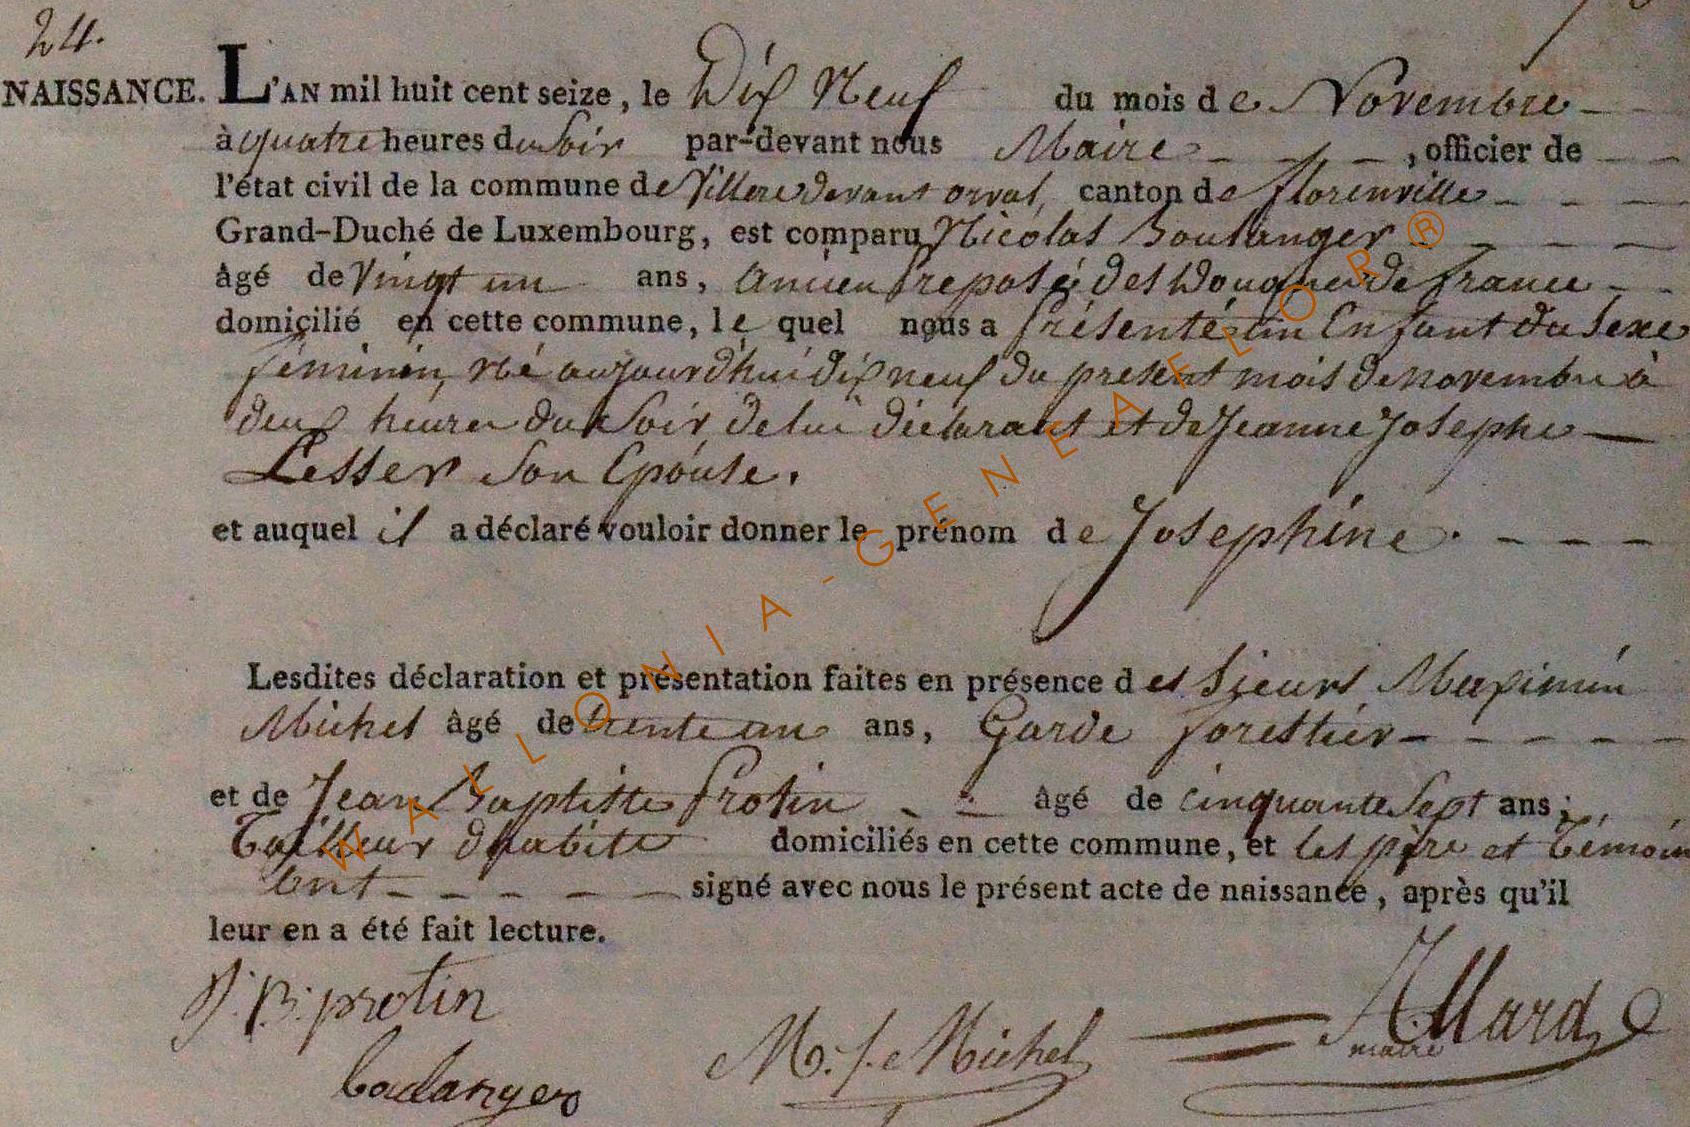 24.
NAISSANCE. L'AN mil huit cent seize, le Dix Neuf du mois de Novembre
à quatre heures du Soir par-devant nous Maire, officier de
l'état civil de la commune de Villere devant orval, canton de florenville
Grand-Duché de Luxembourg, est comparu Nicolas Boulanger
âgé de Vingt un ans, ancien preposé des Douanes de france
domicilié en cette commune, le quel nous a présenté un Enfant du Sexe
féminin, né aujourd'hui dix neuf du present mois de novembre à
deux heures du Soir, de lui déclarant et de Jeanne Josephe
Lesser Son Epouse.
et auquel il a déclaré vouloir donner le prénom de Josephine.
Lesdites déclaration et présentation faites en présence des Sieurs Maximin
Michel âgé de trente un ans, Garde forestier
et de Jean Baptiste Protin âgé de cinquante Sept ans,
Tailleur d'habits domiciliés en cette commune, et les père et Témoin
ont signé avec nous le présent acte de naissance, après qu'il
leur en a été fait lecture.
J.B. protin
boulanger
Michel
Allard
maire
WALLONIA-GENEAELOR®